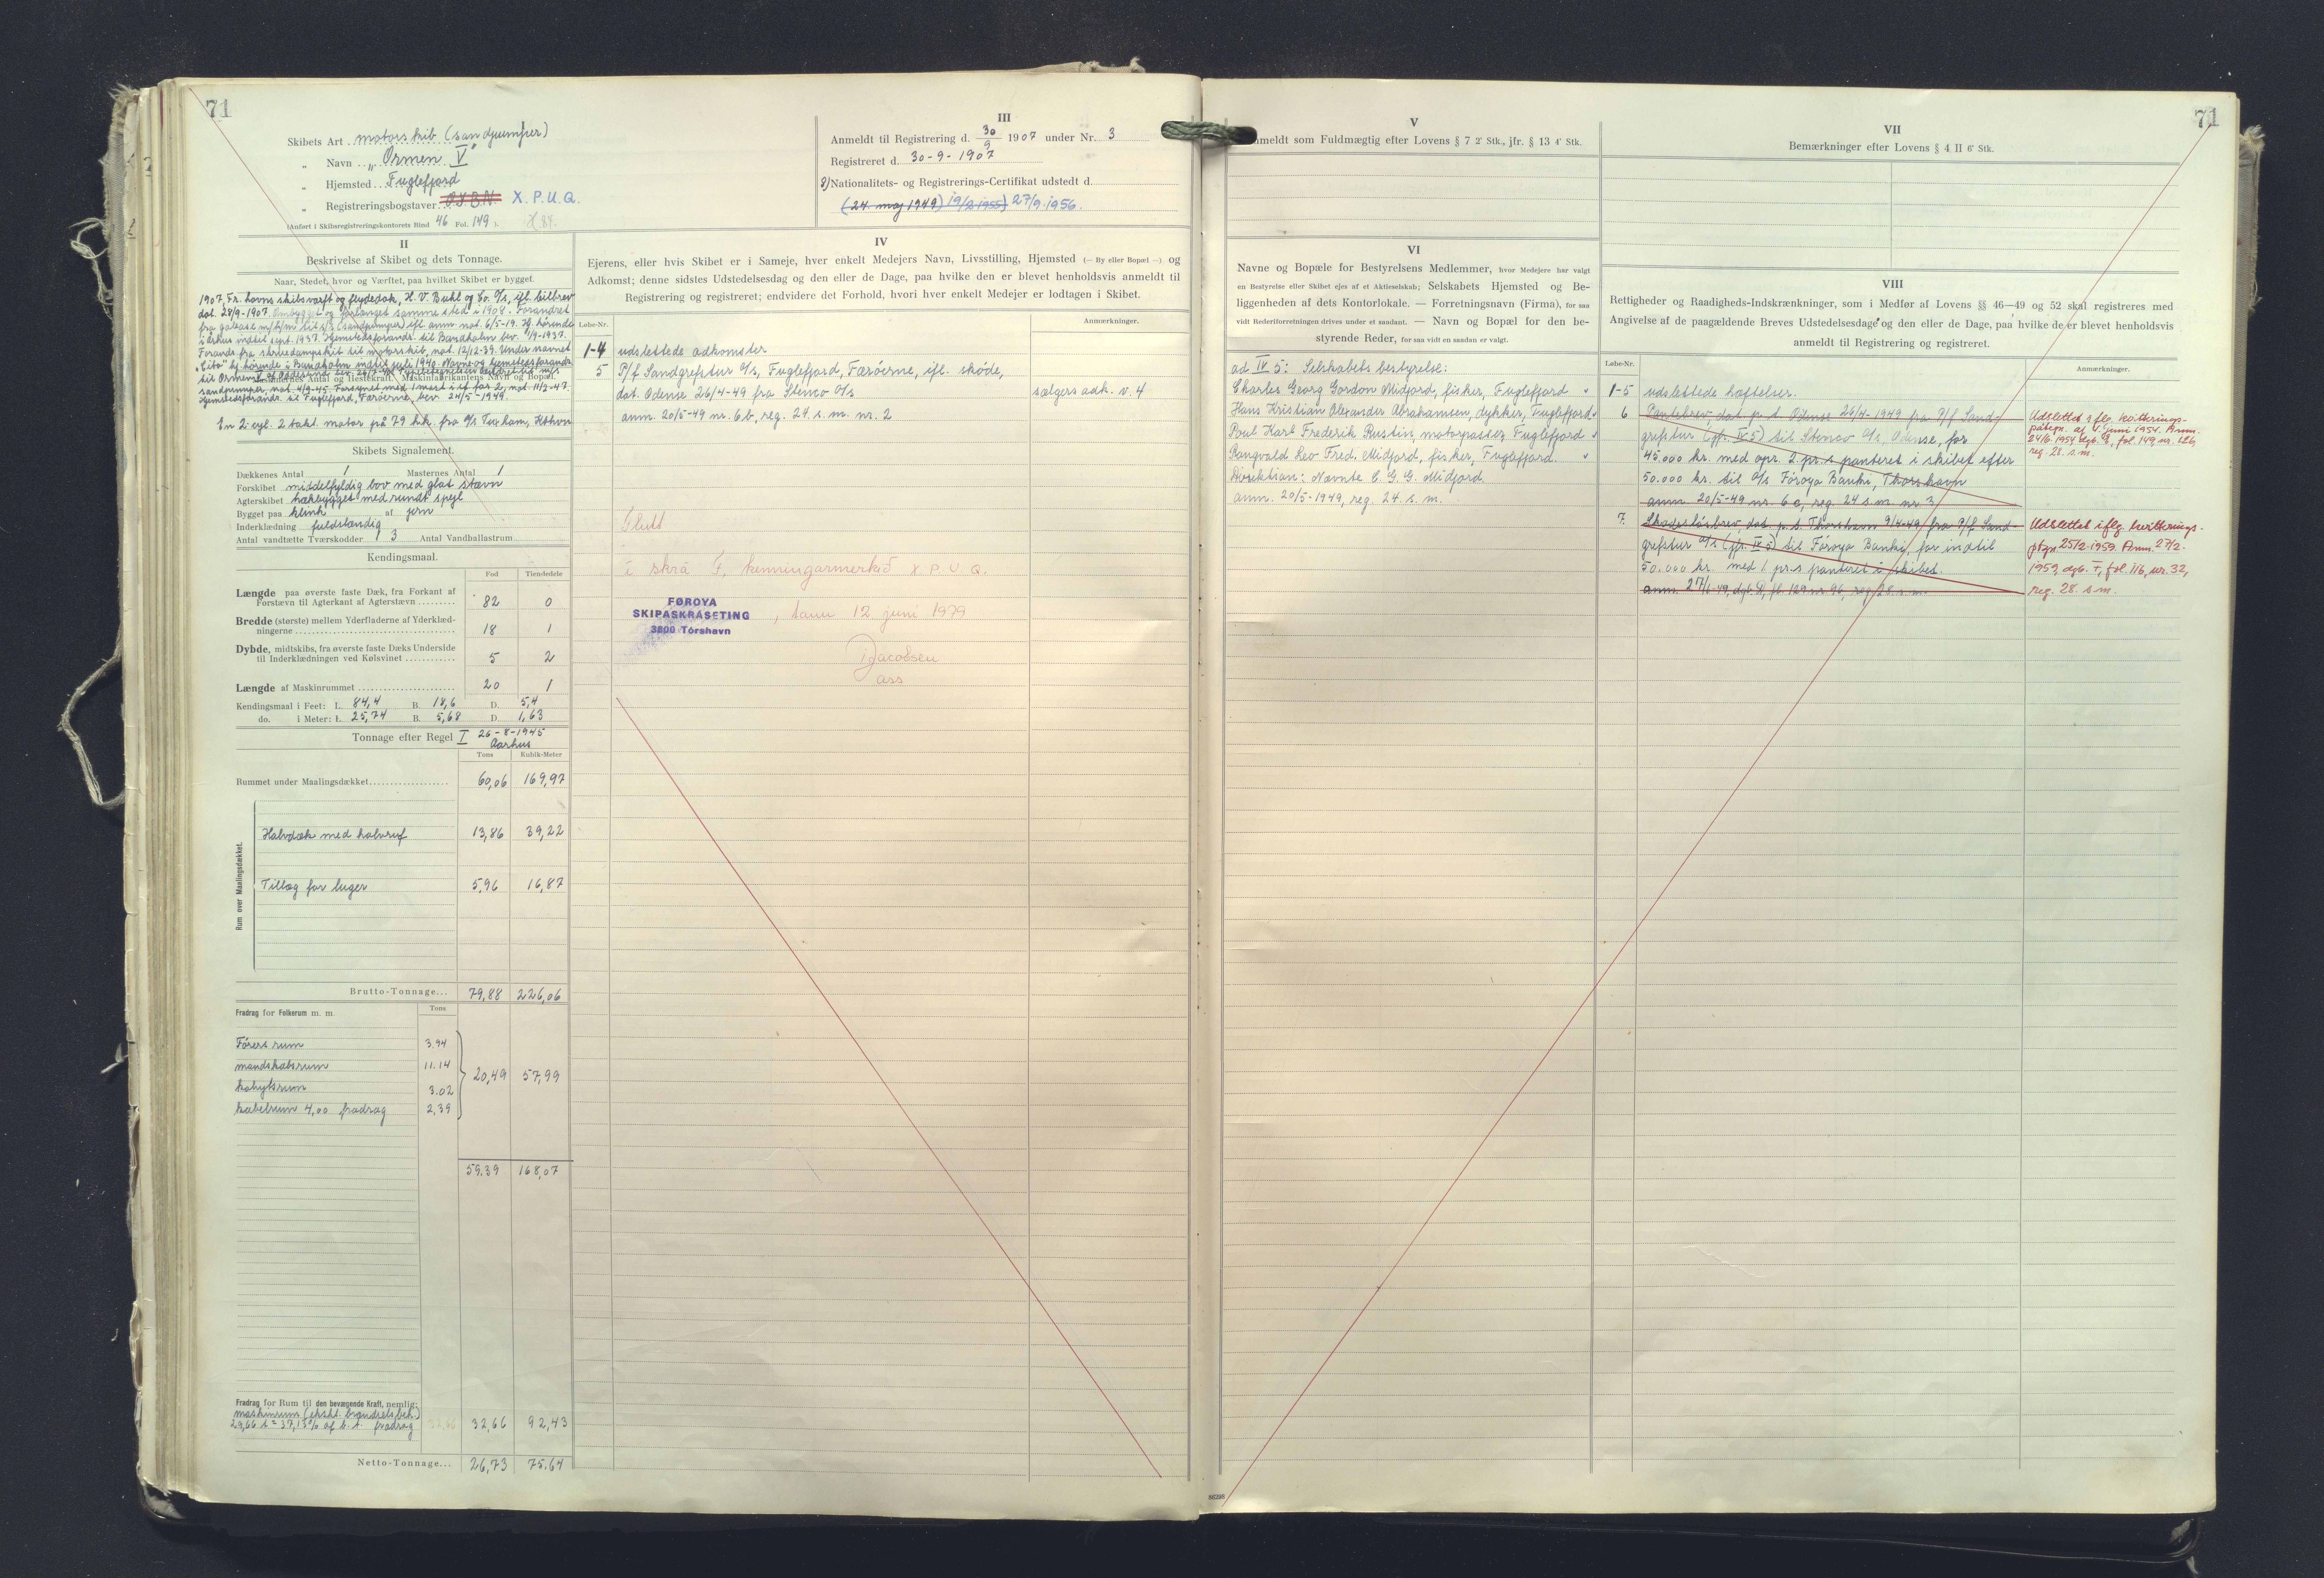 71
Skibets Art motorskib (sandpumper)
„ Navn „Ormen V"
„ Hjemsted Fuglefjord
„ Registreringsbogstaver X.P.U.Q.
(Anført i Skibsregistreringskontorets Bind 46 Fol. 149).
III
Anmeldt til Registrering d. 30/9 1907 under Nr. 3
Registreret d. 30-9-1907
2) Nationalitets- og Registrerings-Certifikat udstedt d.
(24. maj 1949) 19/2 1955) 27/9.1956.
II
Beskrivelse af Skibet og dets Tonnage.
Naar, Stedet, hvor og Værftet, paa hvilket Skibet er bygget.
1907, Fr. havns skibsværft og flydedok, H. V. Buhl og Co. A/s, ifl. bilbrev
dat. 28/9-1907. Ombygget og forlænget samme sted i 1908. Forandret
fra galease m/hjm til s/s (sandpumper) ifl. anm. not. 6/5-19. Hj. hørende
i Århus indtil sept. 1937. Hjemstedsforandr. til Bandholm bev. 1/9-1937.
Forandr. fra skruedampskib til motorskib, not. 12/12-39. Under navnet
hj. hørende i Bandholm indtil juli 1940. Navne- og hjemstedsforandr.
til Ormen V af
Maskinernes Antal og Hestekraft. Maskinfabrikantens Navn og Bopæl.
sandpumper, not. 4/9-45. Forsynet med 1 mast i st. for 2, not. 11/2-47.
Hjemstedsforandr. til Fuglefjord, Færøerne, bev. 24/5-1949.
En 2 cyl. 2 takt. motor på 79 hk. fra A/s Tuxham, Kbhvn
Skibets Signalement.
Dækkenes Antal 1 Masternes Antal 1
Forskibet middelfyldig bov med glat stævn
Agterskibet hækbygget med rundt spejl
Bygget paa klink af jern
Inderklædning fuldstændig
Antal vandtætte Tværskodder 3 Antal Vandballastrum
Kendingsmaal.
Fod Tiendedele
Længde paa øverste faste Dæk, fra Forkant af
Forstævn til Agterkant af Agterstævn 82 0
Bredde (største) mellem Yderfladerne af Yderklæd-
ningerne 18 1
Dybde, midtskibs, fra øverste faste Dæks Underside
til Inderklædningen ved Kølsvinet 5 2
Længde af Maskinrummet 20 1
Kendingsmaal i Feet: L. 84,4 B. 18,6 D. 5,4
do. i Meter: L. 25,74 B. 5,68 D. 1,63
Tonnage efter Regel I 26-8-1945
Aarhus
Tons Kubik-Meter
Rummet under Maalingsdækket 60,06 169,97
Rum over Maalingsdækket.
Halvdæk med halvruf 13,86 39,22
Tillæg for luger 5,96 16,87
Brutto-Tonnage... 79,88 226,06
Fradrag for Folkerum m. m. Tons
Førers rum 3.94
mandskabsrum 11.14
kabysrum 3.02
kabelrum 4,00 fradrag 2,39
20,49 57,99
59.39 168,07
Fradrag for Rum til den bevægende Kraft, nemlig:
maskinrum (ekskl. brændselsbeh.)
29,66 t = 37,13% af b. t. fradrag 32,66 92,43
Netto-Tonnage... 26,73 75.64
IV
Ejerens, eller hvis Skibet er i Sameje, hver enkelt Medejers Navn, Livsstilling, Hjemsted (— By eller Bopæl —) og
Adkomst; denne sidstes Udstedelsesdag og den eller de Dage, paa hvilke den er blevet henholdsvis anmeldt til
Registrering og registreret; endvidere det Forhold, hvori hver enkelt Medejer er lodtagen i Skibet.
Løbe-Nr. Anmærkninger.
1-4 udslettede adkomster
5 P/f Sandgrefstur A/s, Fuglefjord, Færöerne, ifl. sköde,
dat. Odense 26/4-49 fra Stenco A/s sælgers adk. v. 4
anm. 20/5-49 nr. 6b, reg. 24. s. m. nr. 2
Flutt
í skrá F, kenningarmerkið X.P.U.Q.
FØROYA
SKIPASKRÁSETING
3800 Tórshavn
, tann 12 juni 1979
Jacobsen
ass
71
V
Anmeldt som Fuldmægtig efter Lovens § 7 2' Stk., jfr. § 13 4' Stk.
VI
Navne og Bopæle for Bestyrelsens Medlemmer, hvor Medejere har valgt
en Bestyrelse eller Skibet ejes af et Aktieselskab; Selskabets Hjemsted og Be-
liggenheden af dets Kontorlokale. — Forretningsnavn (Firma), for saa
vidt Rederiforretningen drives under et saadant. — Navn og Bopæl for den be-
styrende Reder, for saa vidt en saadan er valgt.
ad IV 5: Selskabets bestyrelse:
Charles Georg Gordon Midjord, fisker, Fuglefjord
Hans Kristian Alexander Abrahamsen, dykker, Fuglefjord
Poul Karl Frederik Rustin, motorpasser, Fuglefjord
Rangvald Leo Fred. Midjord, fisker, Fuglefjord.
Direktion: Nævnte C. G. G. Midjord.
anm. 20/5-1949, reg. 24. s. m.
VII
Bemærkninger efter Lovens § 4 II 6' Stk.
VIII
Rettigheder og Raadigheds-Indskrænkninger, som i Medfør af Lovens §§ 46—49 og 52 skal registreres med
Angivelse af de paagældende Breves Udstedelsesdage og den eller de Dage, paa hvilke de er blevet henholdsvis
anmeldt til Registrering og registreret.
Løbe-Nr. Anmærkninger.
1-5 udslettede hæftelser.
6 Pantebrev, dat. p. t. Odense 26/4-1949 fra P/f Sand-
grefstur (jfr. IV 5) til Stenco A/s, Odense, for
45.000 kr. med opr. 2. pr.s panteret i skibet efter
50.000 kr. til A/s Föroya Banki, Thorshavn
anm. 20/5-49 nr. 6 c, reg. 24 s. m. nr. 3
Udslettet iflg. kvitterings-
påtegn. af 1. juni 1954. Anm.
24/6. 1954 dgb. E, fol. 149, nr. 126,
reg. 28. s. m.
7. Skadeslösbrev, dat. p. t. Thorshavn 9/4-49 fra P/f Sand-
grefstur A/s (jfr. IV 5) til Föroya Banki, for indtil
50.000 kr. med 1. pr.s panteret i skibet.
anm. 27/6-49, dgb. D, fl. 129 nr. 96, reg. 28. s. m.
Udslettet iflg. kvitterings-
ptgn 25/2. 1959. Anm. 27/2.
1959, dgb. F, fol. 116, nr. 32,
reg. 28. s. m.
86298